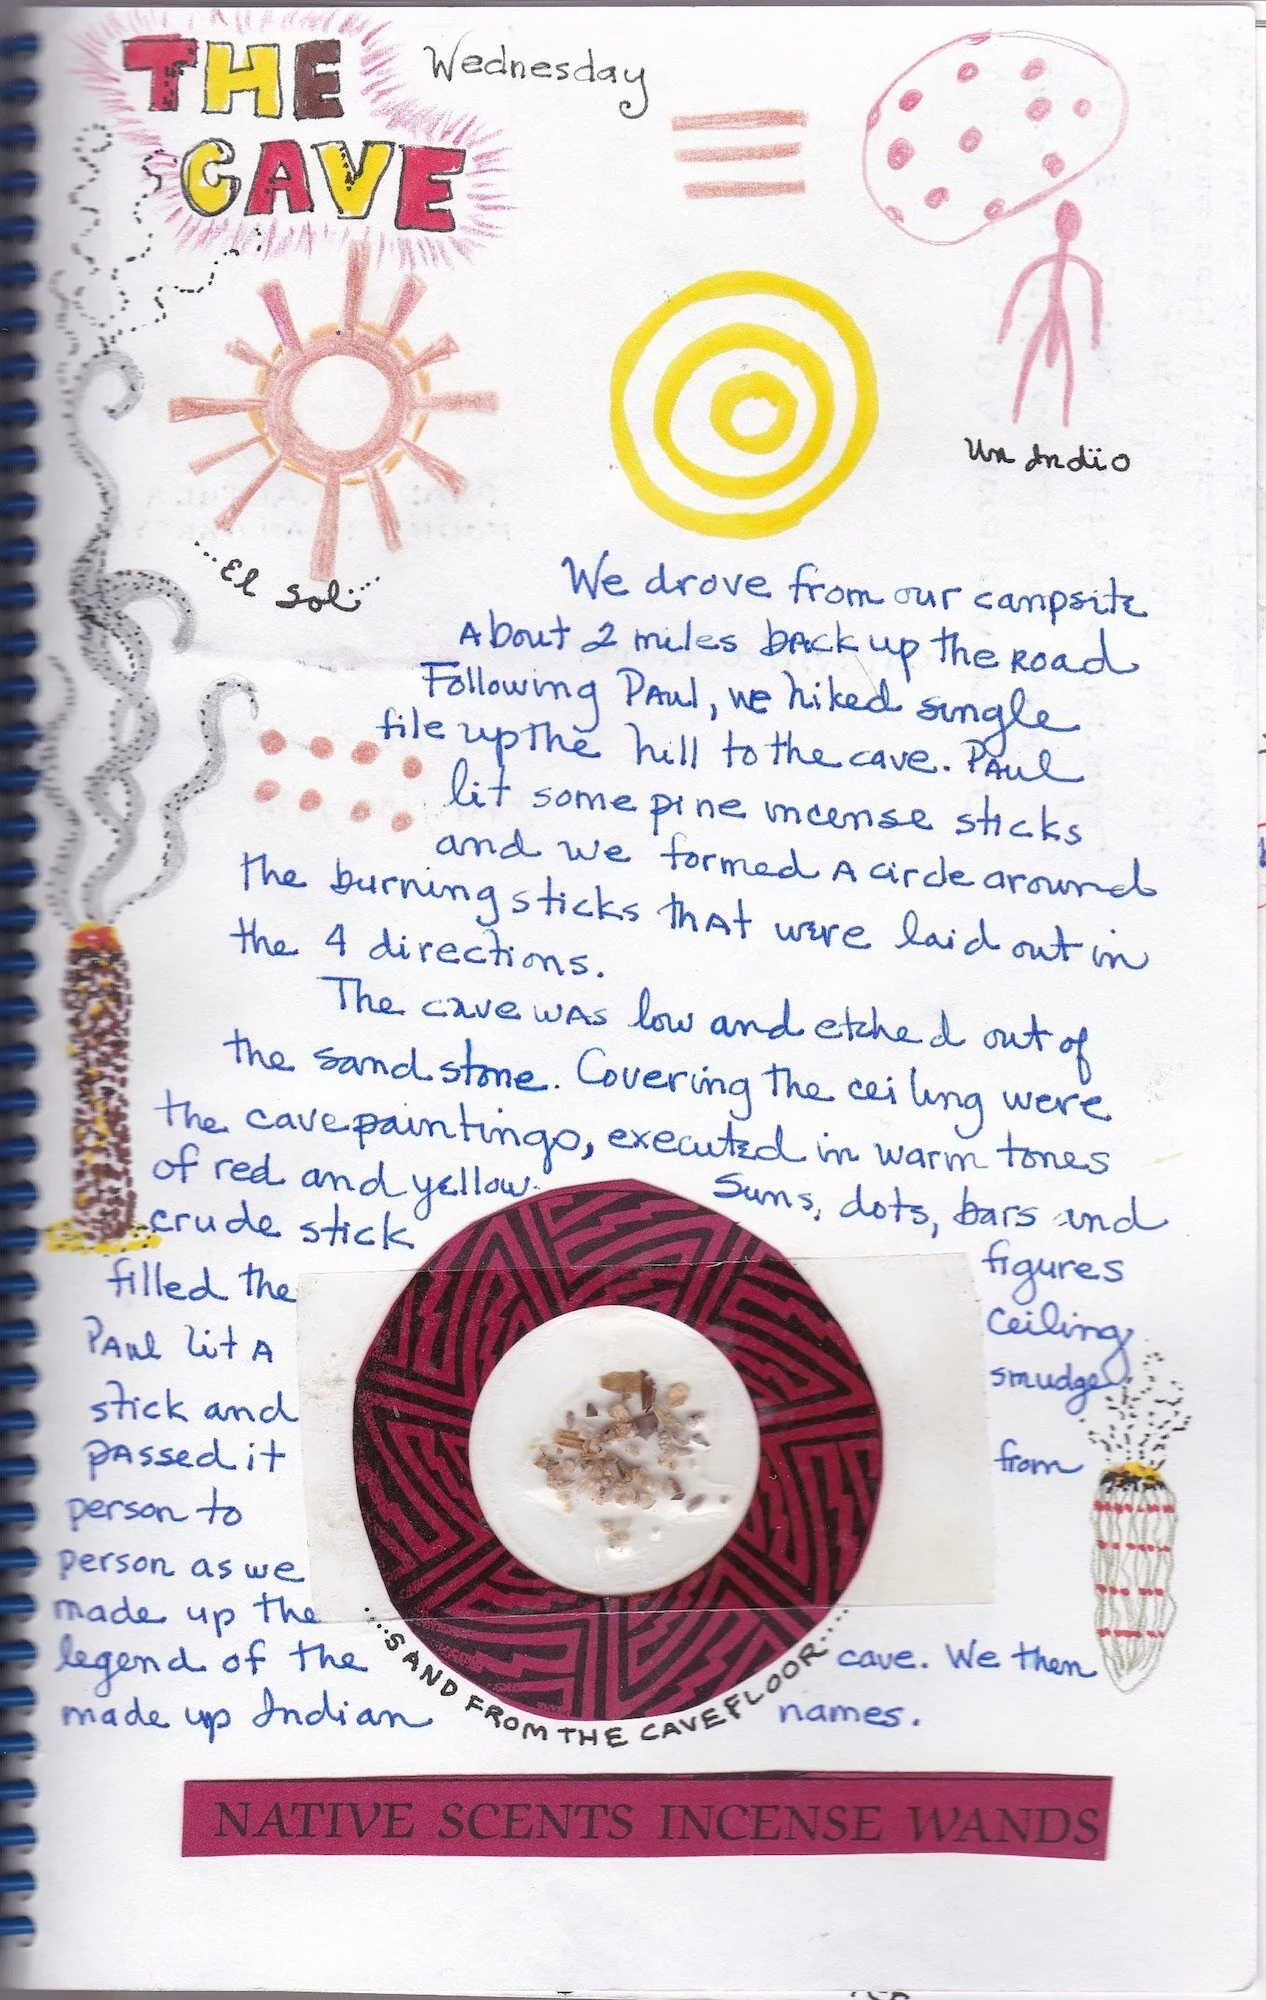 THE
CAVE
Wednesday
Un Indïo
El Sol
We drove from our campsite
About 2 miles back up the road
Following Paul, we hiked single
file up the hill to the cave. Paul
lit some pine incense sticks
and we formed A circle around
the burning sticks that were laid out in
the 4 directions.
The cave was low and etched out of
the sandstone. Covering the ceiling were
the cave paintings, executed in warm tones
of red and yellow. Suns, dots, bars and
crude stick figures
filled the ceiling
Paul lit A smudge
stick and
passed it from
person to
person as we
made up the
legend of the cave. We then
made up Indian names.
...SAND FROM THE CAVE FLOOR...
NATIVE SCENTS INCENSE WANDS